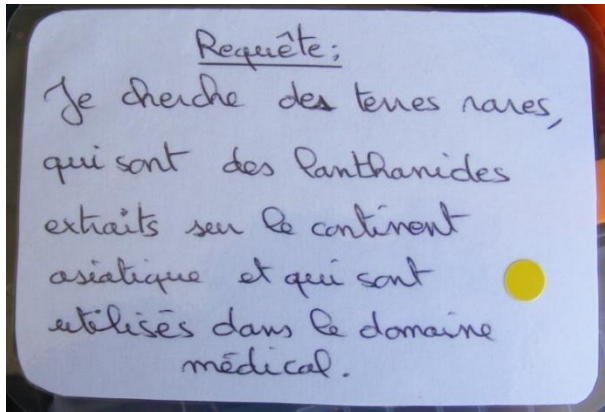 Requête:
Je cherche des terres rares,
qui sont des lanthanides
extraits sur le continent
asiatique et qui sont
utilisés dans le domaine
médical.